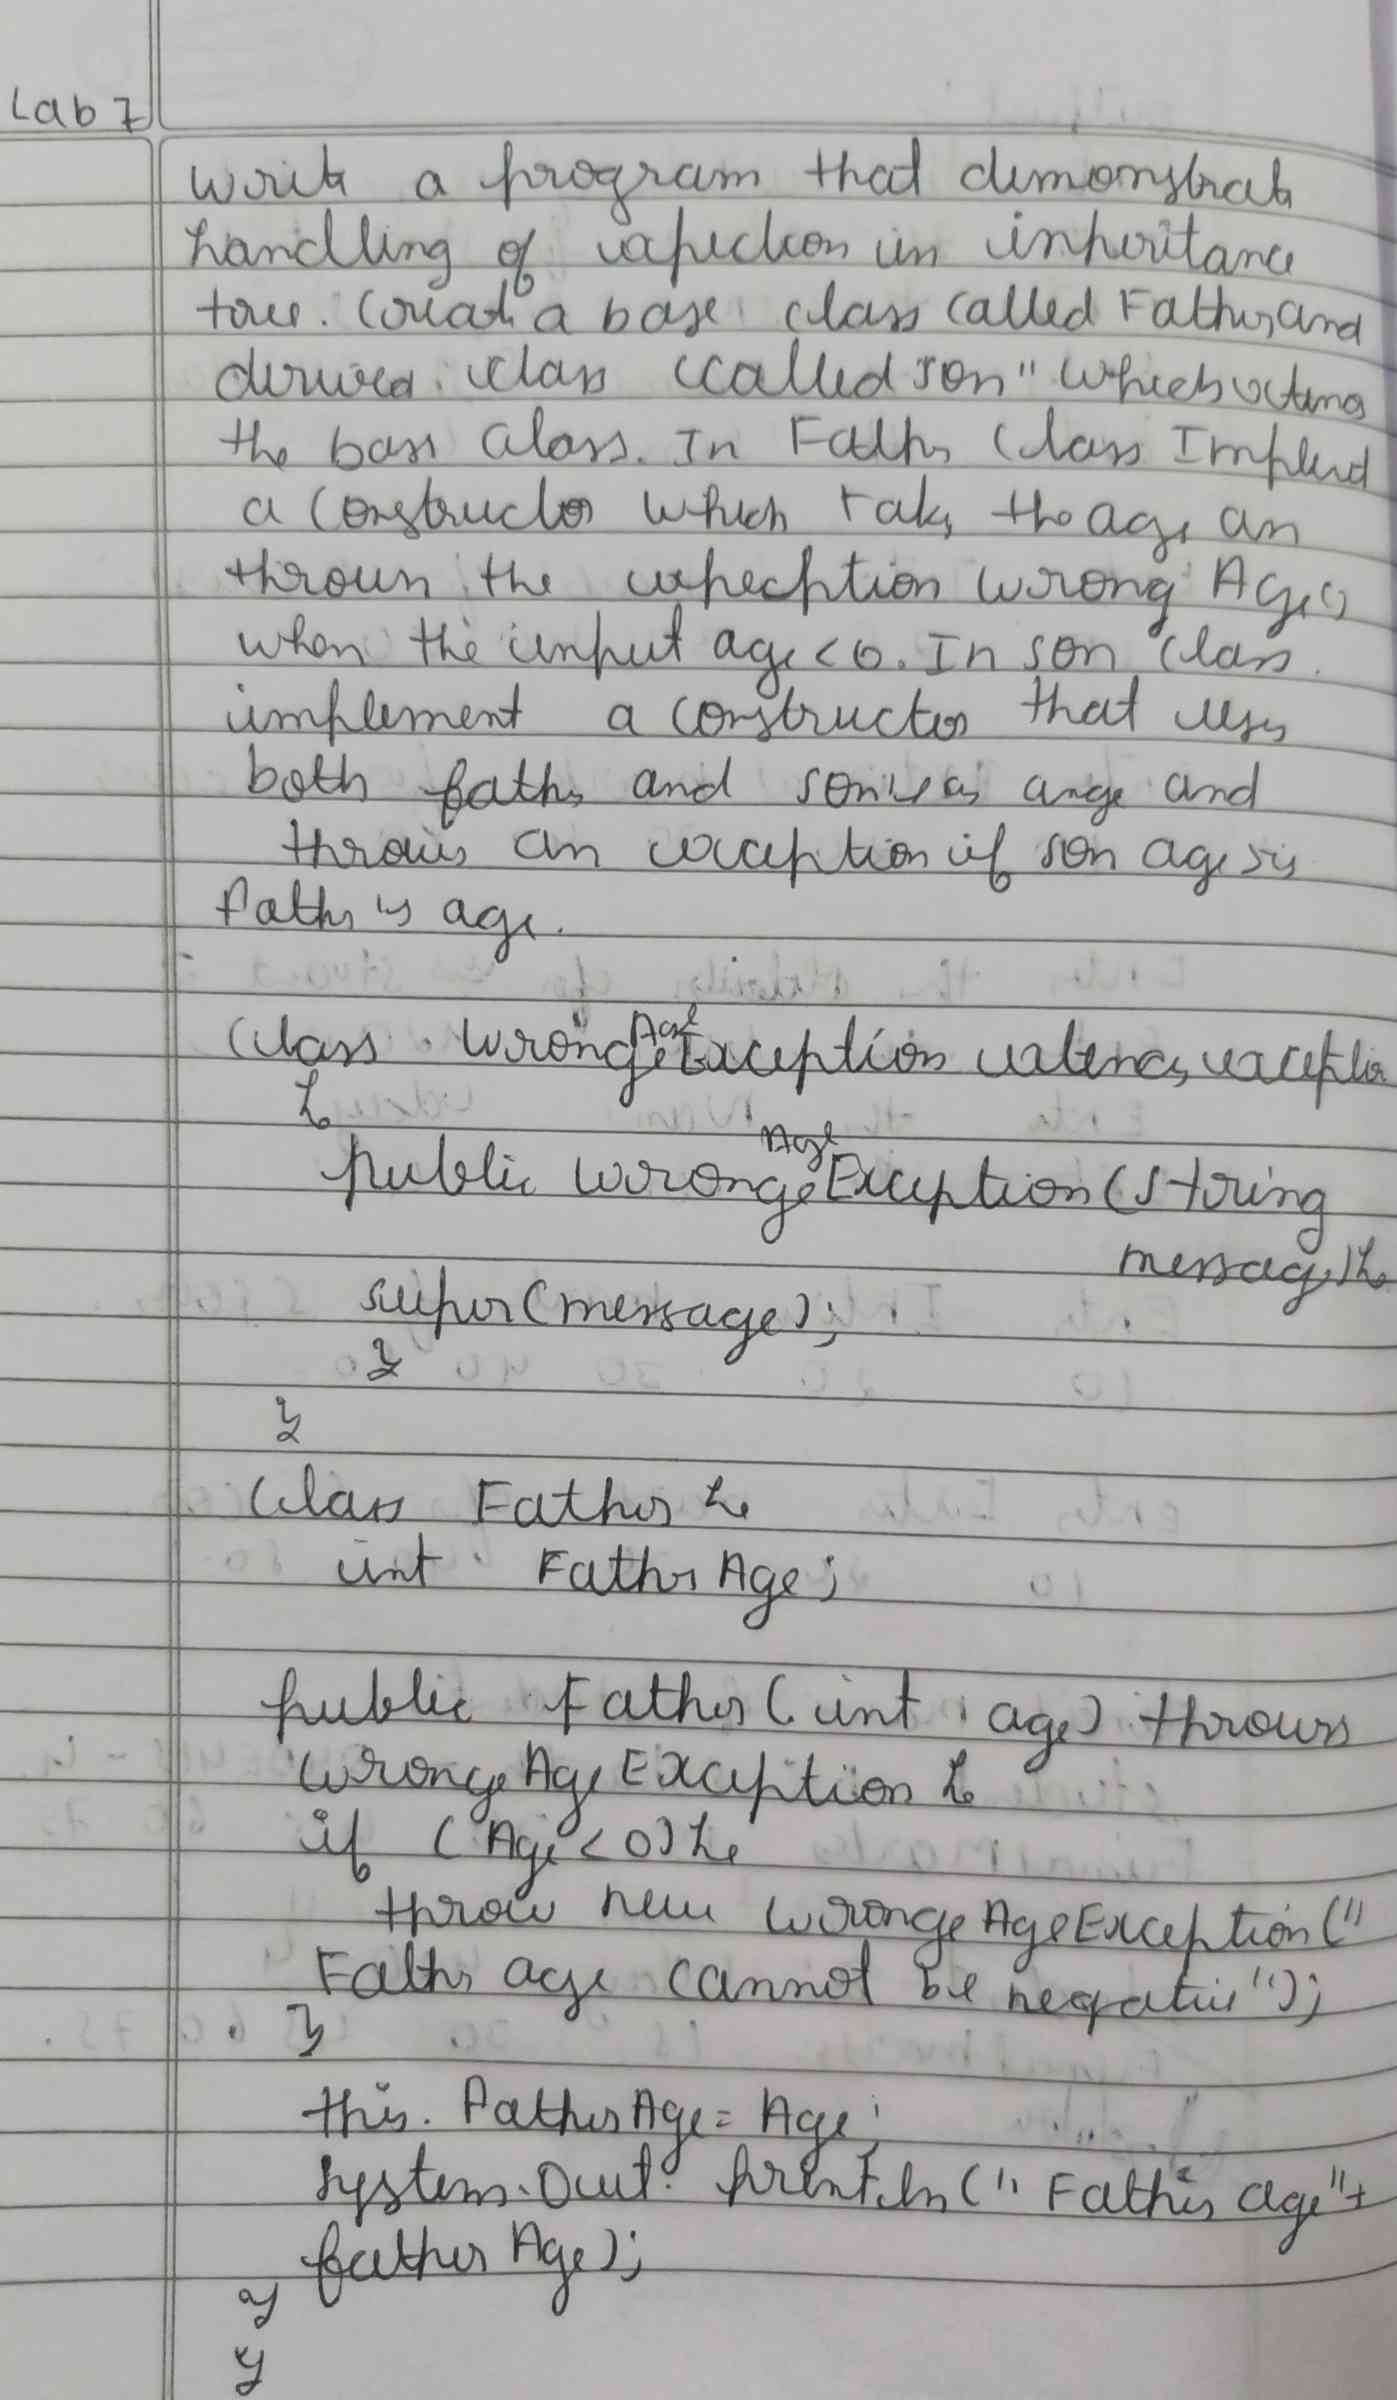 Lab 7
Write a program that demonstrate
handling of in inheritance
tree. Create a base class called Father and
derived class called son" which
the base class. In Father class
a constructor which take the age an
thrown the Wrong Age()
when the input age < 0. In son class.
implement a constructor that uses
both father and and
throws an exception if son age
age.
class WrongAgeException extends exception
{
public WrongeAgeException (String
message) {
super(message);
}
}
class Father {
int Father Age;
public Father (int age) throws
WrongeAgeException {
if (Age < 0) {
throw new WrongeAgeException ("
Father age cannot be negative");
}
this. FatherAge = Age;
System.Out. println (" Father age" +
father Age);
}
}